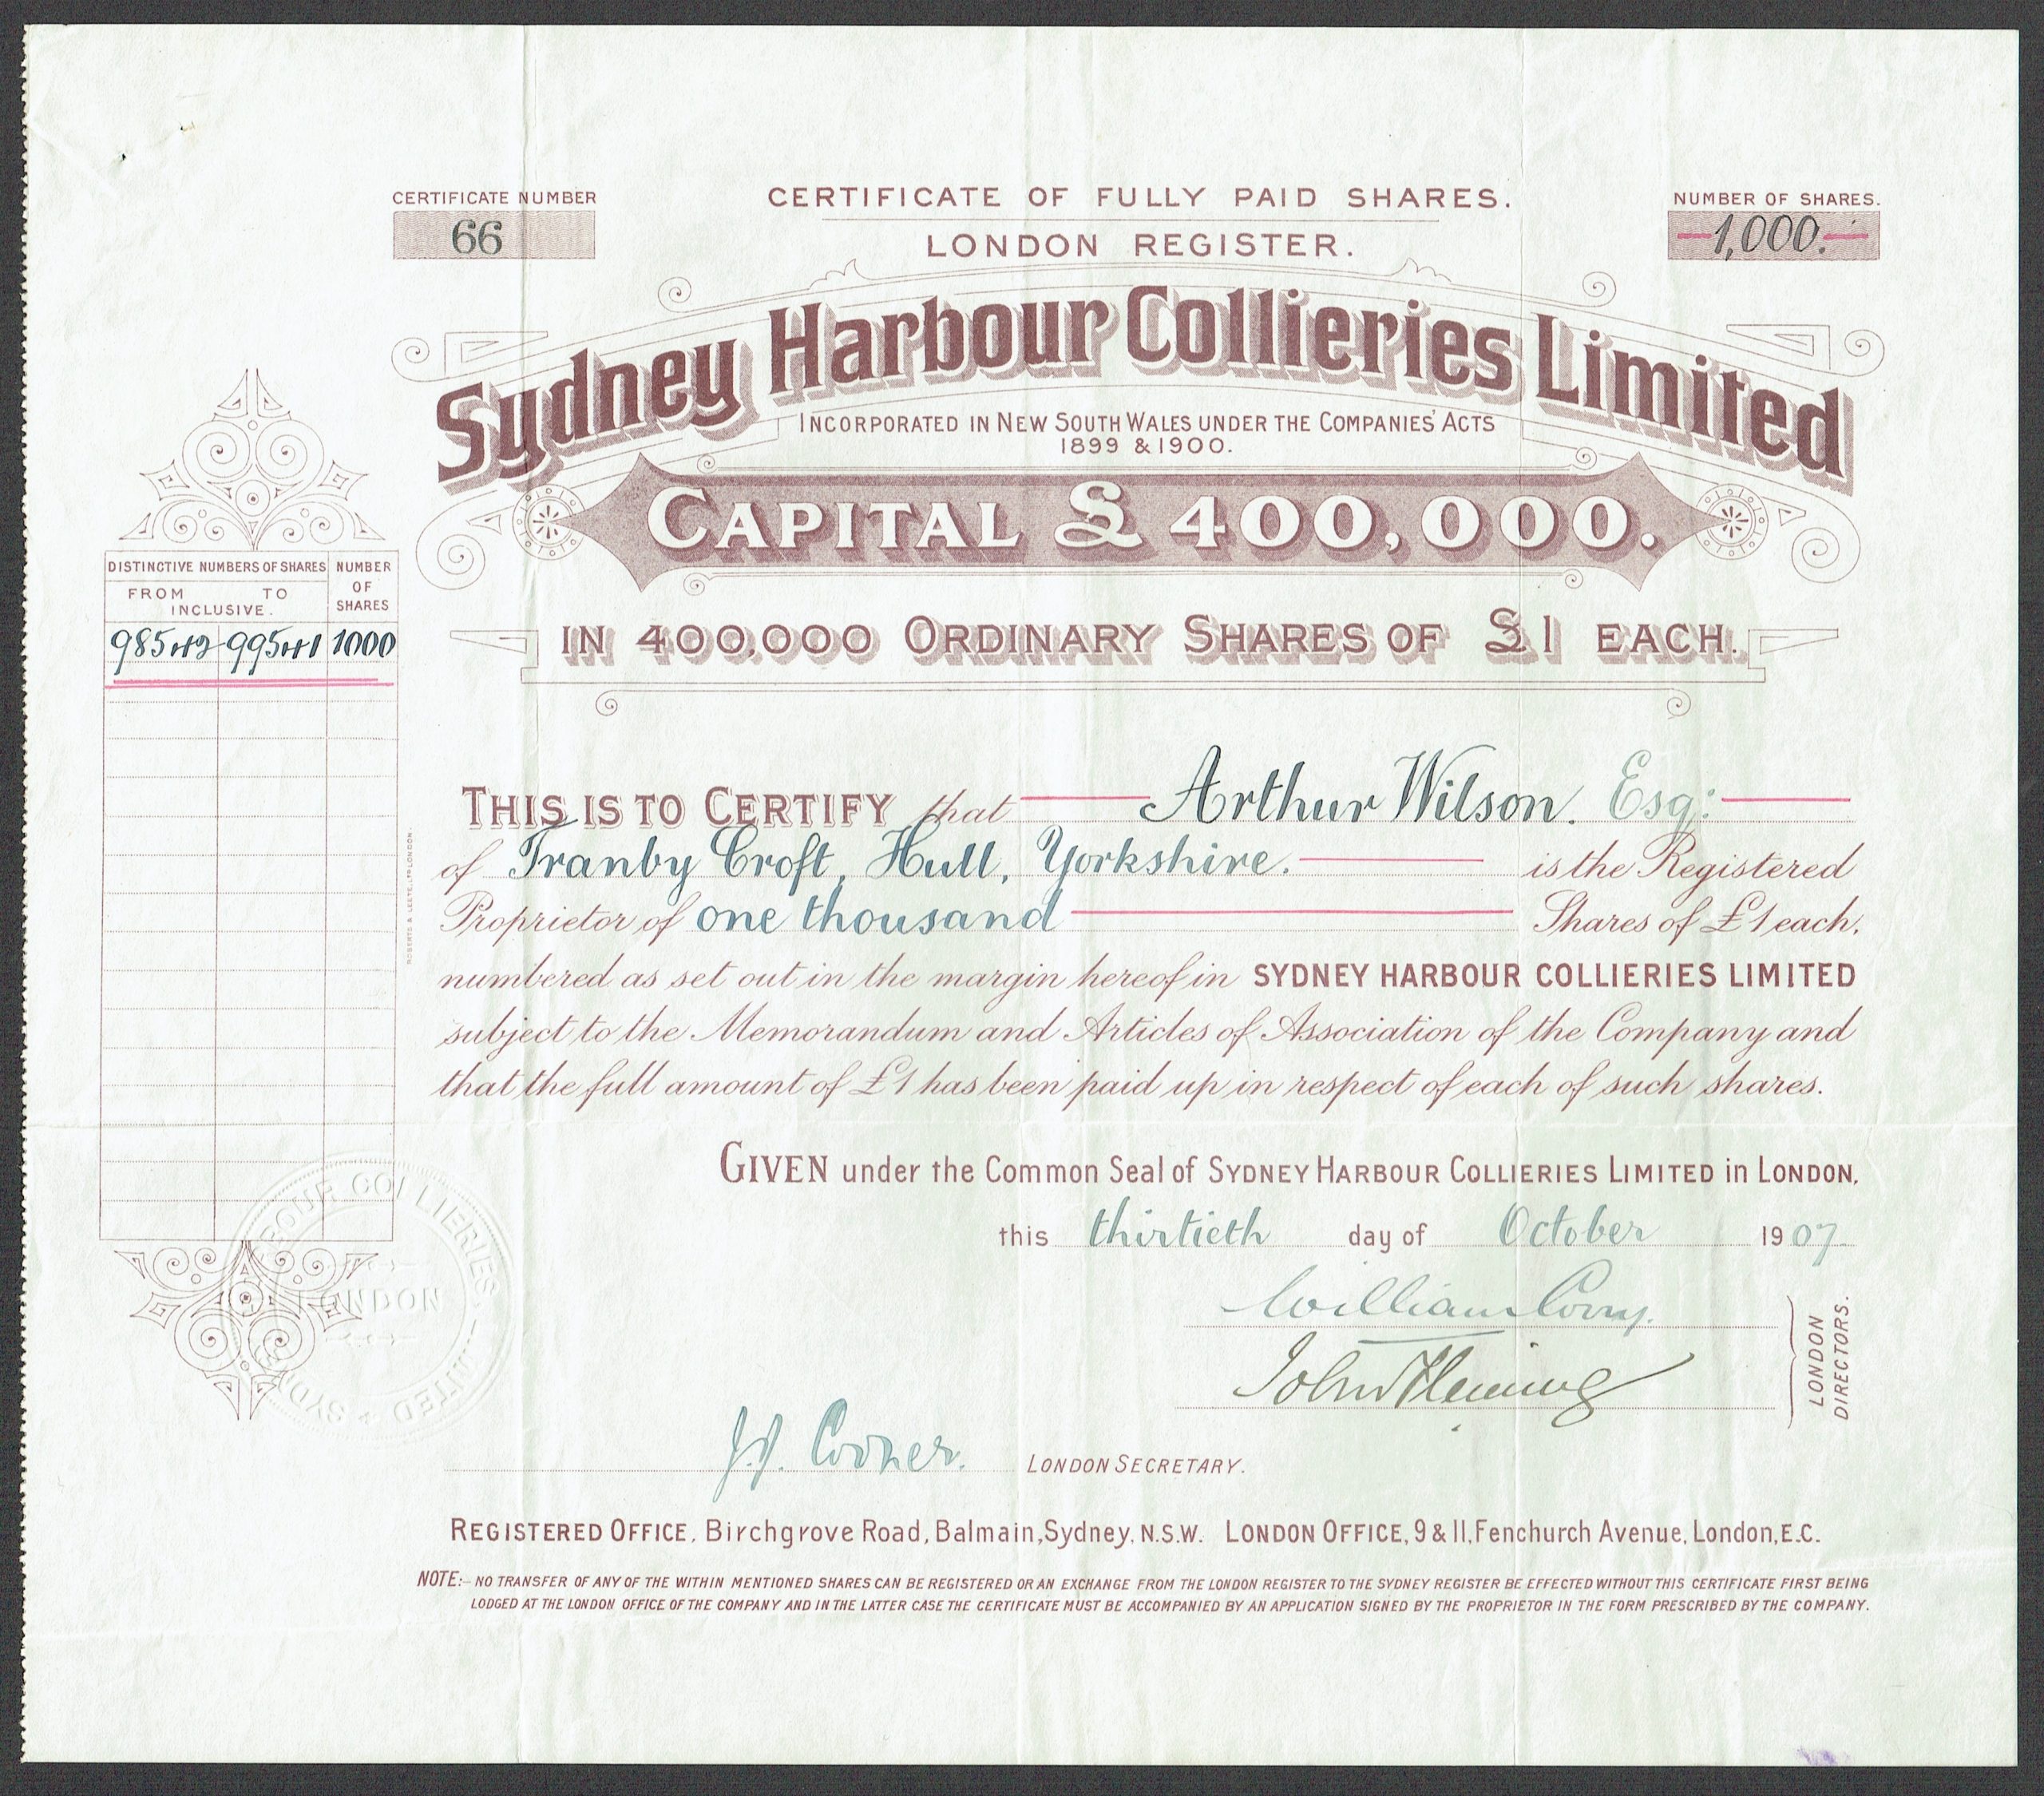 CERTIFICATE NUMBER
66
CERTIFICATE OF FULLY PAID SHARES.
LONDON REGISTER.
NUMBER OF SHARES.
1,000.
Sydney Harbour Collieries Limited
INCORPORATED IN NEW SOUTH WALES UNDER THE COMPANIES' ACTS
1899 & 1900.
CAPITAL £400,000.
IN 400,000 ORDINARY SHARES OF £1 EACH.
DISTINCTIVE NUMBERS OF SHARES NUMBER OF SHARES
FROM TO
INCLUSIVE.
98542 99541 1000
ROBERTS & LEETE, LTD LONDON.
THIS IS TO CERTIFY that Arthur Wilson. Esq:
of Tranby Croft, Hull, Yorkshire. is the Registered
Proprietor of one thousand Shares of £1 each,
numbered as set out in the margin hereof in SYDNEY HARBOUR COLLIERIES LIMITED
subject to the Memorandum and Articles of Association of the Company and
that the full amount of £1 has been paid up in respect of each of such shares.
GIVEN under the Common Seal of SYDNEY HARBOUR COLLIERIES LIMITED in LONDON,
this thirtieth day of October 1907.
William
John Fleming
LONDON DIRECTORS.
LONDON SECRETARY.
SYDNEY HARBOUR COLLIERIES LIMITED
LONDON
REGISTERED OFFICE, Birchgrove Road, Balmain, Sydney, N.S.W. LONDON OFFICE, 9 & 11, Fenchurch Avenue, London, E.C.
NOTE:- NO TRANSFER OF ANY OF THE WITHIN MENTIONED SHARES CAN BE REGISTERED OR AN EXCHANGE FROM THE LONDON REGISTER TO THE SYDNEY REGISTER BE EFFECTED WITHOUT THIS CERTIFICATE FIRST BEING
LODGED AT THE LONDON OFFICE OF THE COMPANY AND IN THE LATTER CASE THE CERTIFICATE MUST BE ACCOMPANIED BY AN APPLICATION SIGNED BY THE PROPRIETOR IN THE FORM PRESCRIBED BY THE COMPANY.